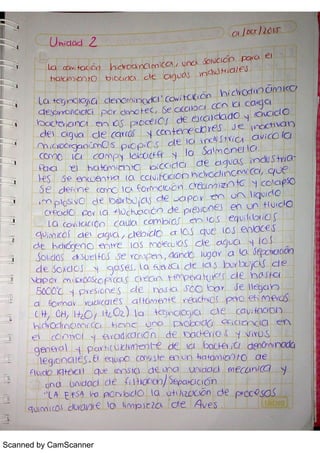 01/oct/2015
Unidad 2
La cavitación hidrodinámica, una solución para el
tratamiento biocina de aguas industriales.
La tegnologia denominada cavitación hidrodinámico
desarrollada por dmotec, se acabaci con la carga
bacteriana en los procesos de escaldado y enfriado
del agua de carros y contenedores se inactivan
microorganismos propios de la industria avicola
como la campy lobacter y la Salmonella.
Para el tratamiento biocida de aguas industria-
les se encuentra la cavitación hidrodinámica, que
se define como la formación crecimiento y colapso
implosivo de burbujas de vapor en un liquido
creado por la fluctuación de presiones en un fluido
La cavitación causa cambios en los equilibrios
quimicos del agua, debido a los que los enlaces
de hidrogeno entre las moleculas de agua y los
solidos disueltos se rompen, dando lugar a la separación
de solidos y gases. La fuerza de las burbujas de
vapor microscópicas crean temperaturas de hasta
5000°C y presiones de hasta 500 bar. Se llegan
a formar radicales altamente reactivos pero efimeros
(H, OH, H2O y H2O2) la tegnologia de cavitacion
hidrodinámica tiene una probada eficiencia en
el control y erradicación de bacterias y virus
general y particularmente de la bacteria denominada
legionales. El equipo consiste en un tratamiento de
fluido que consta de una unidad mecanica y
una unidad de filtracion/separación
"LA EFSA ha prohibido la utilización de procesos
quimicos durante la limpieza de Aves
Scanned by CamScanner